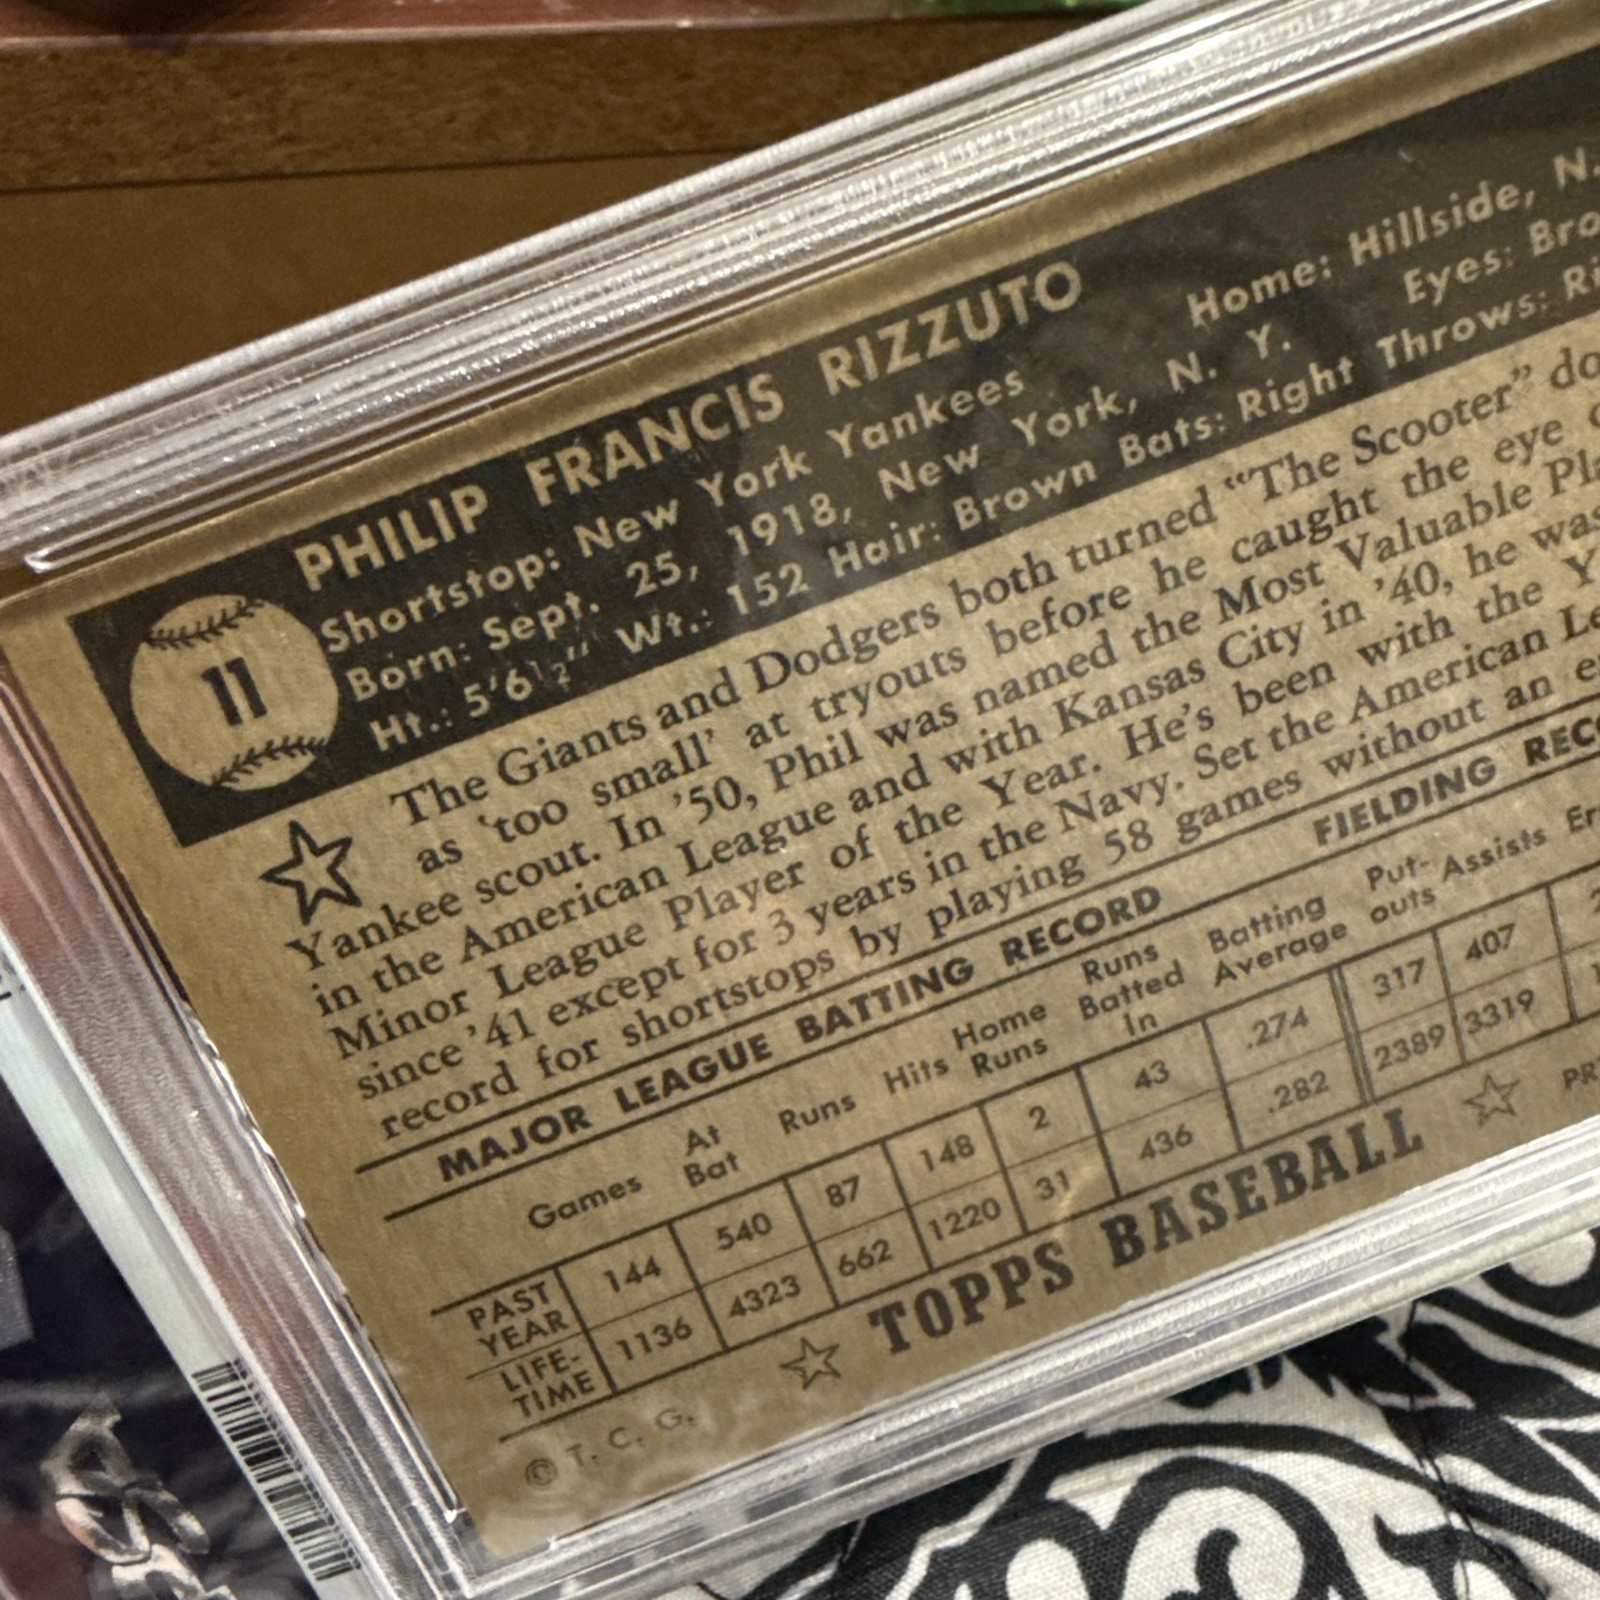 PHILIP FRANCIS RIZZUTO
Shortstop: New York Yankees Home: Hillside, N.
Born: Sept. 25, 1918, New York, N. Y. Eyes: Bro
Ht.: 5'6½" Wt.: 152 Hair: Brown Bats: Right Throws: Ri
11
The Giants and Dodgers both turned “The Scooter” do
as ‘too small’ at tryouts before he caught the eye
Yankee scout. In ’50, Phil was named the Most Valuable Pla
in the American League and with Kansas City in ’40, he was
Minor League Player of the Year. He’s been with the Y
since ’41 except for 3 years in the Navy. Set the American Le
record for shortstops by playing 58 games without an e
MAJOR LEAGUE BATTING RECORD FIELDING RECO
Games At Bat Runs Hits Home Runs Runs Batted In Batting Average Put-outs Assists Er
PAST YEAR 144 540 87 148 2 43 .274 317 407
LIFE-TIME 1136 4323 662 1220 31 436 .282 2389 3319
☆ TOPPS BASEBALL ☆ PR
© T. C. G.